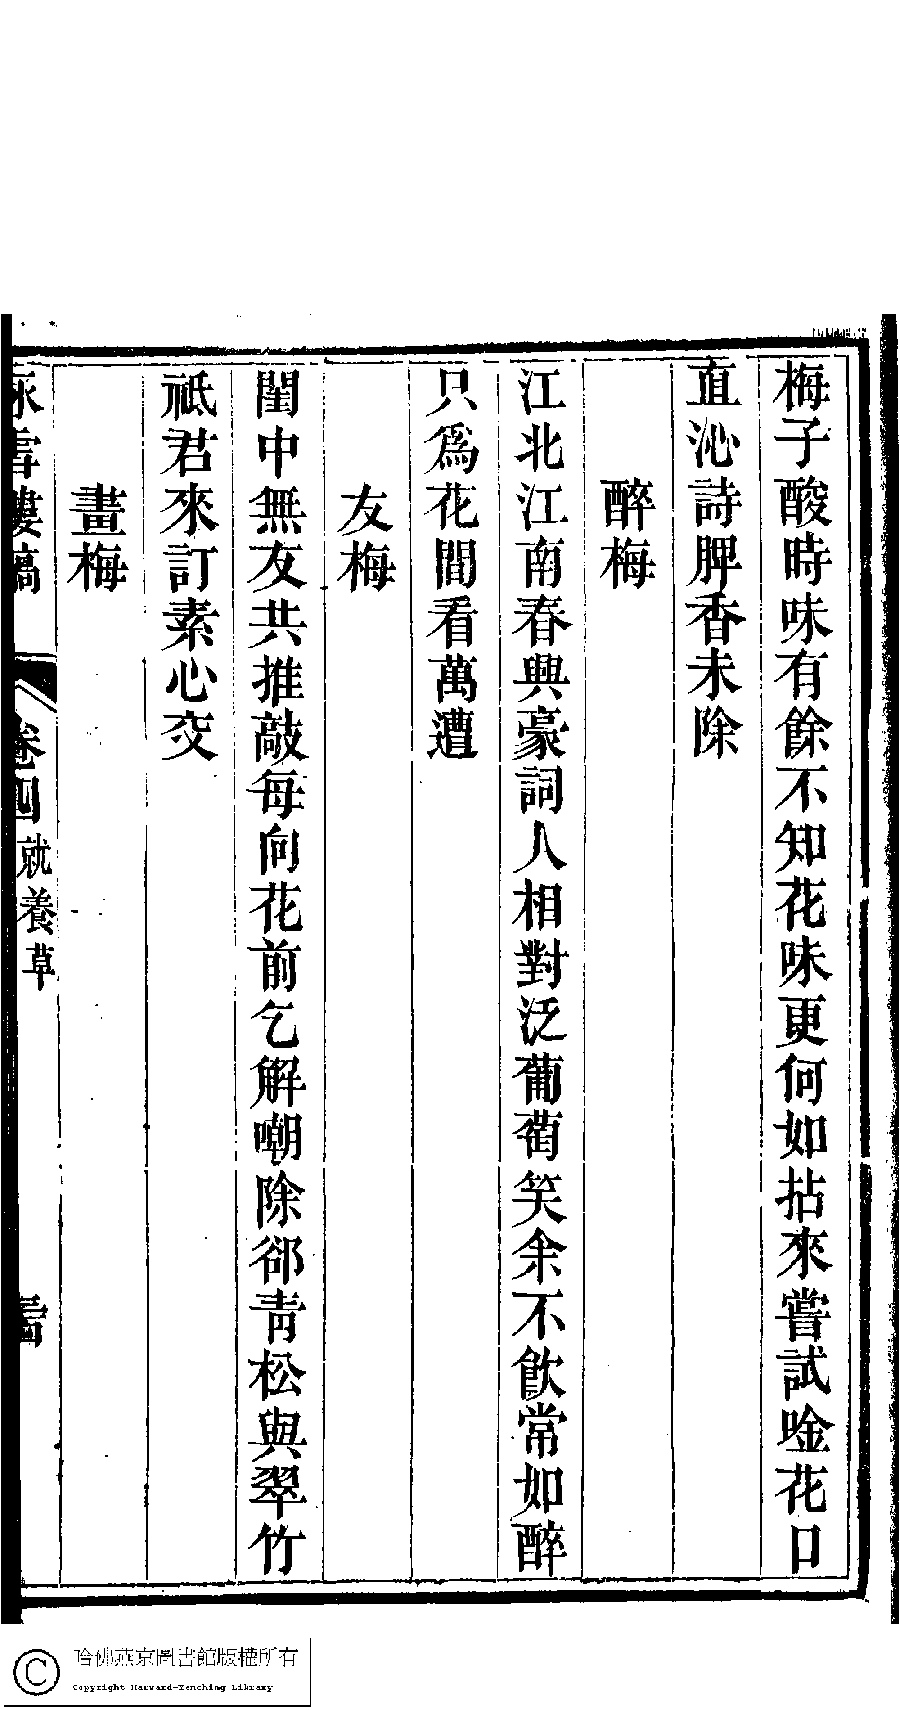 梅子酸時味有餘不知花味更何如拈來嘗試唫花口
直沁詩脾香未除
醉梅
江北江南春興豪詞人相對泛葡萄笑余不飲常如醉
只爲花間看萬遭
友梅
閨中無友共推敲每向花前乞解嘲除郤靑松與翠竹
祗君來訂素心交
畫梅
雪樓稿 卷四 就養草
哈佛燕京圖書館版權所有
Copyright Harvard-Yenching Library